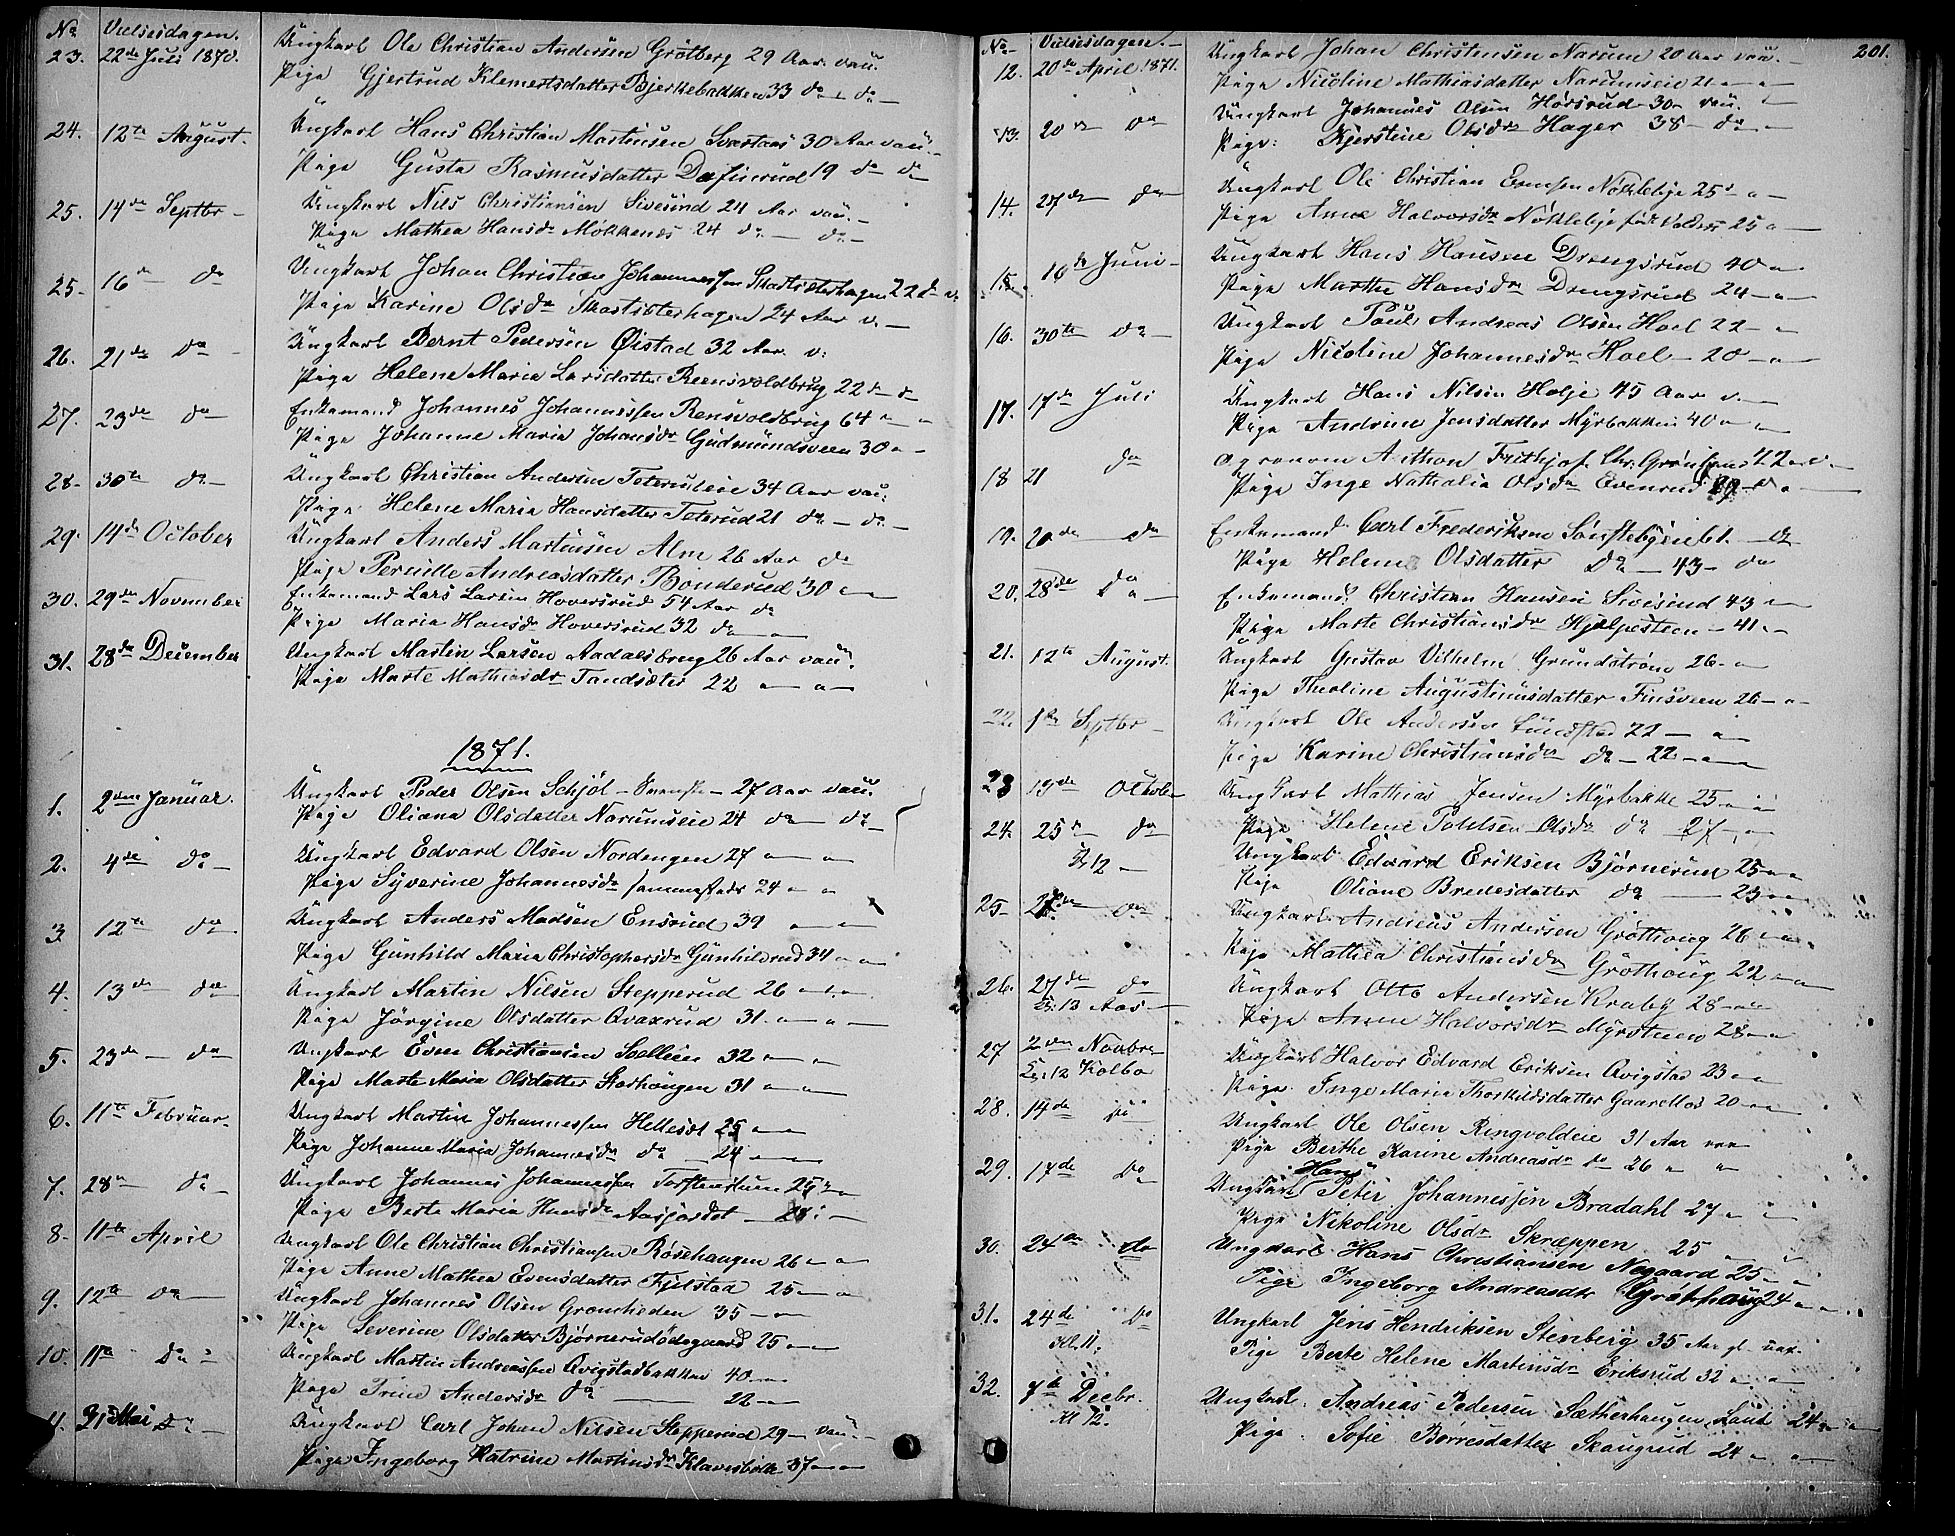 No Vielsesdagen.
23. 22de Juli 1870. Ungkarl Ole Christian Andersen Grøtberg 29 Aar vau.
Pige Gjertrud Klemertsdatter Bjerkebakken 33 do do
24. 12te August. Ungkarl Hans Christian Martinsen 30 Aar vau.
Pige Gusta Rasmusdatter Dafinrud 19 do do
25. 14de Septbr Ungkarl Nils Christiansen Sivesind 24 Aar vau.
Pige Mathea Hansdr 24 do do
25. 16de do Ungkarl Johan Christian Johannessen 22 do v.
Pige Karine Olsdr 24 Aar v.
26. 21de do Ungkarl Bernt Pedersen Øistad 32 Aar v.
Pige Helene Maria Larsdatter Reensvoldbrug 22 d d
27. 23de do Enkemand Johannes Johannessen Rensvoldbrug 64
Pige Johanne Maria Johansdr Gudmundsveen 30
28. 30te do Ungkarl Christian Andersen 34 Aar vau.
Pige Helene Maria Hansdatter Toterud 21 do do
29. 14de October Ungkarl Anders Martinsen Alm 26 Aar do
Pige Pernille Andreasdatter Bonderud 30
30. 29de November Enkemand Lars Larsen Hoversrud 54 Aar do
Pige Maria Hansdr Hoversrud 32 do
31. 28de December Ungkarl Martin Larsen Aadalsbrug 26 Aar vau.
Pige Marte Mathiasdr Sandsæter 22
1871.
1. 2den Januar. Ungkarl Peder Olsen Schjøl 27 Aar vau.
Pige Oliana Olsdatter Narumseie 24 do do
2. 4de do Ungkarl Edvard Olsen Nordengen 27
Pige Syverine Johannesdr sammesteds 24
3. 12te do Ungkarl Anders Madsen Ensrud 39
Pige Gunhild Maria Christophersdr Gunhildrud 34
4. 13de do Ungkarl Martin Nilsen Stepperud 26
Pige Jørgine Olsdatter Qvaxrud 31
5. 23de do Ungkarl Even Christiansen Sollien 32
Pige Marte Maria Olsdatter 31
6. 11te Februar Ungkarl Martin Johannessen 25
Pige Johanne Maria Johannesdr do 24
7. 28de do Ungkarl Johannes Johannessen 25
Pige Berte Maria Hansdr Aasjordet
8. 11te April Ungkarl Ole Christian Christiansen Rosehaugen 26
Pige Anne Mathea Evensdatter Fjelstad 25
9. 12te do Ungkarl Johannes Olsen Grønheden 35
Pige Severine Olsdatter Bjørnerudødegaard 25
10. 11te do Ungkarl Martin Andreassen Qvigstadbakken 40
Pige Trine Andersdr do 22
11. 31 Mai do Ungkarl Carl Johan Nilsen Stepperud 29 vau.
Pige Ingeborg Katrine Martinsdr Klavesbøle 37
No Vielsesdagen. 201.
12. 20de April 1871. Ungkarl Johan Christensen Narum 20 Aar vau.
Pige Nicoline Mathiasdatter Narumseie 21
13. 20de do Ungkarl Johannes Olsen Horsrud 30 vau.
Pige Kjerstine Olsdr Hager 38 do
14. 27de do Ungkarl Ole Christian Evensen Nøkleby 25
Pige Anne Halvorsdr 25
15. 16de Juni Ungkarl Hans Hansen Drengsrud 40
Pige Marthe Hansdr Drengsrud 24
16. 30te do Ungkarl Paul Andreas Olsen Hoel 22
Pige Nicoline Johannesdr Hoel 20
17. 17de Juli Ungkarl Hans Nilsen Holje 45 Aar v.
Pige Andrine Jensdatter Myrbakken 40
18 21 do Agronom Anthon Frithjof Chr. Grønlund 22
Pige Inge Nathalia Olsdr Evenrud
19. 20de do Enkemand Carl Frederiksen 61
Pige Helene Olsdatter do 43 do
20. 28de do Enkemand Christian Hansen Sivesind 43
Pige Marte Christiansdr Hjelpesteen 41
21. 12te August. Ungkarl Gustav Vilhelm Grundstrøm 26
Pige Theoline Augustinusdatter Finsveen 26
22. 1ste Septbr Ungkarl Ole Andersen 22
Pige Karine Christiansdr do 22
23 19de Octob Ungkarl Mathias Jensen Myrbakke 25
Pige Helene Olsdr do 27
24. 25de do Kl 12 Ungkarl Edvard Eriksen Bjørnerud 25
Pige Oliane Bredesdatter do 23
25 do Ungkarl Andreas Andersen Grøthaug 26
Pige Mathea Christiansdr Grøthaug 22
26. 27de do Kl. 13 Aas Ungkarl Otto Andersen Kraby 28
Pige Anne Halvorsdr Myrsteen 28
27 2den Novbr Kl. 12 Kolbo Ungkarl Halvor Edvard Eriksen Qvigstad 23
Pige Inge Maria Thorkildsdatter 20
28. 14de do Ungkarl Ole Olsen Ringvoldeie 31 Aar vau
Pige Berthe Karine Andreasdr do 26
29. 17de do Ungkarl Hans Peter Johannessen Bradahl 27
Pige Nikoline Olsdr Skræppen 25
30. 24de do Ungkarl Hans Christiansen Nøgaard 25
Pige Ingeborg Andreasdtr Grøthaug 24
31. 24de do Kl. 11. Ungkarl Jens Hendriksen Stenberg 35 Aar gl. vax.
Pige Berte Helene Martinsdr Eriksrud 32
32. 7de Decbr. Kl 12. Ungkarl Andreas Pedersen Sætherhaugen Land 24
Pige Sofie Børresdatter Skaugrud 24